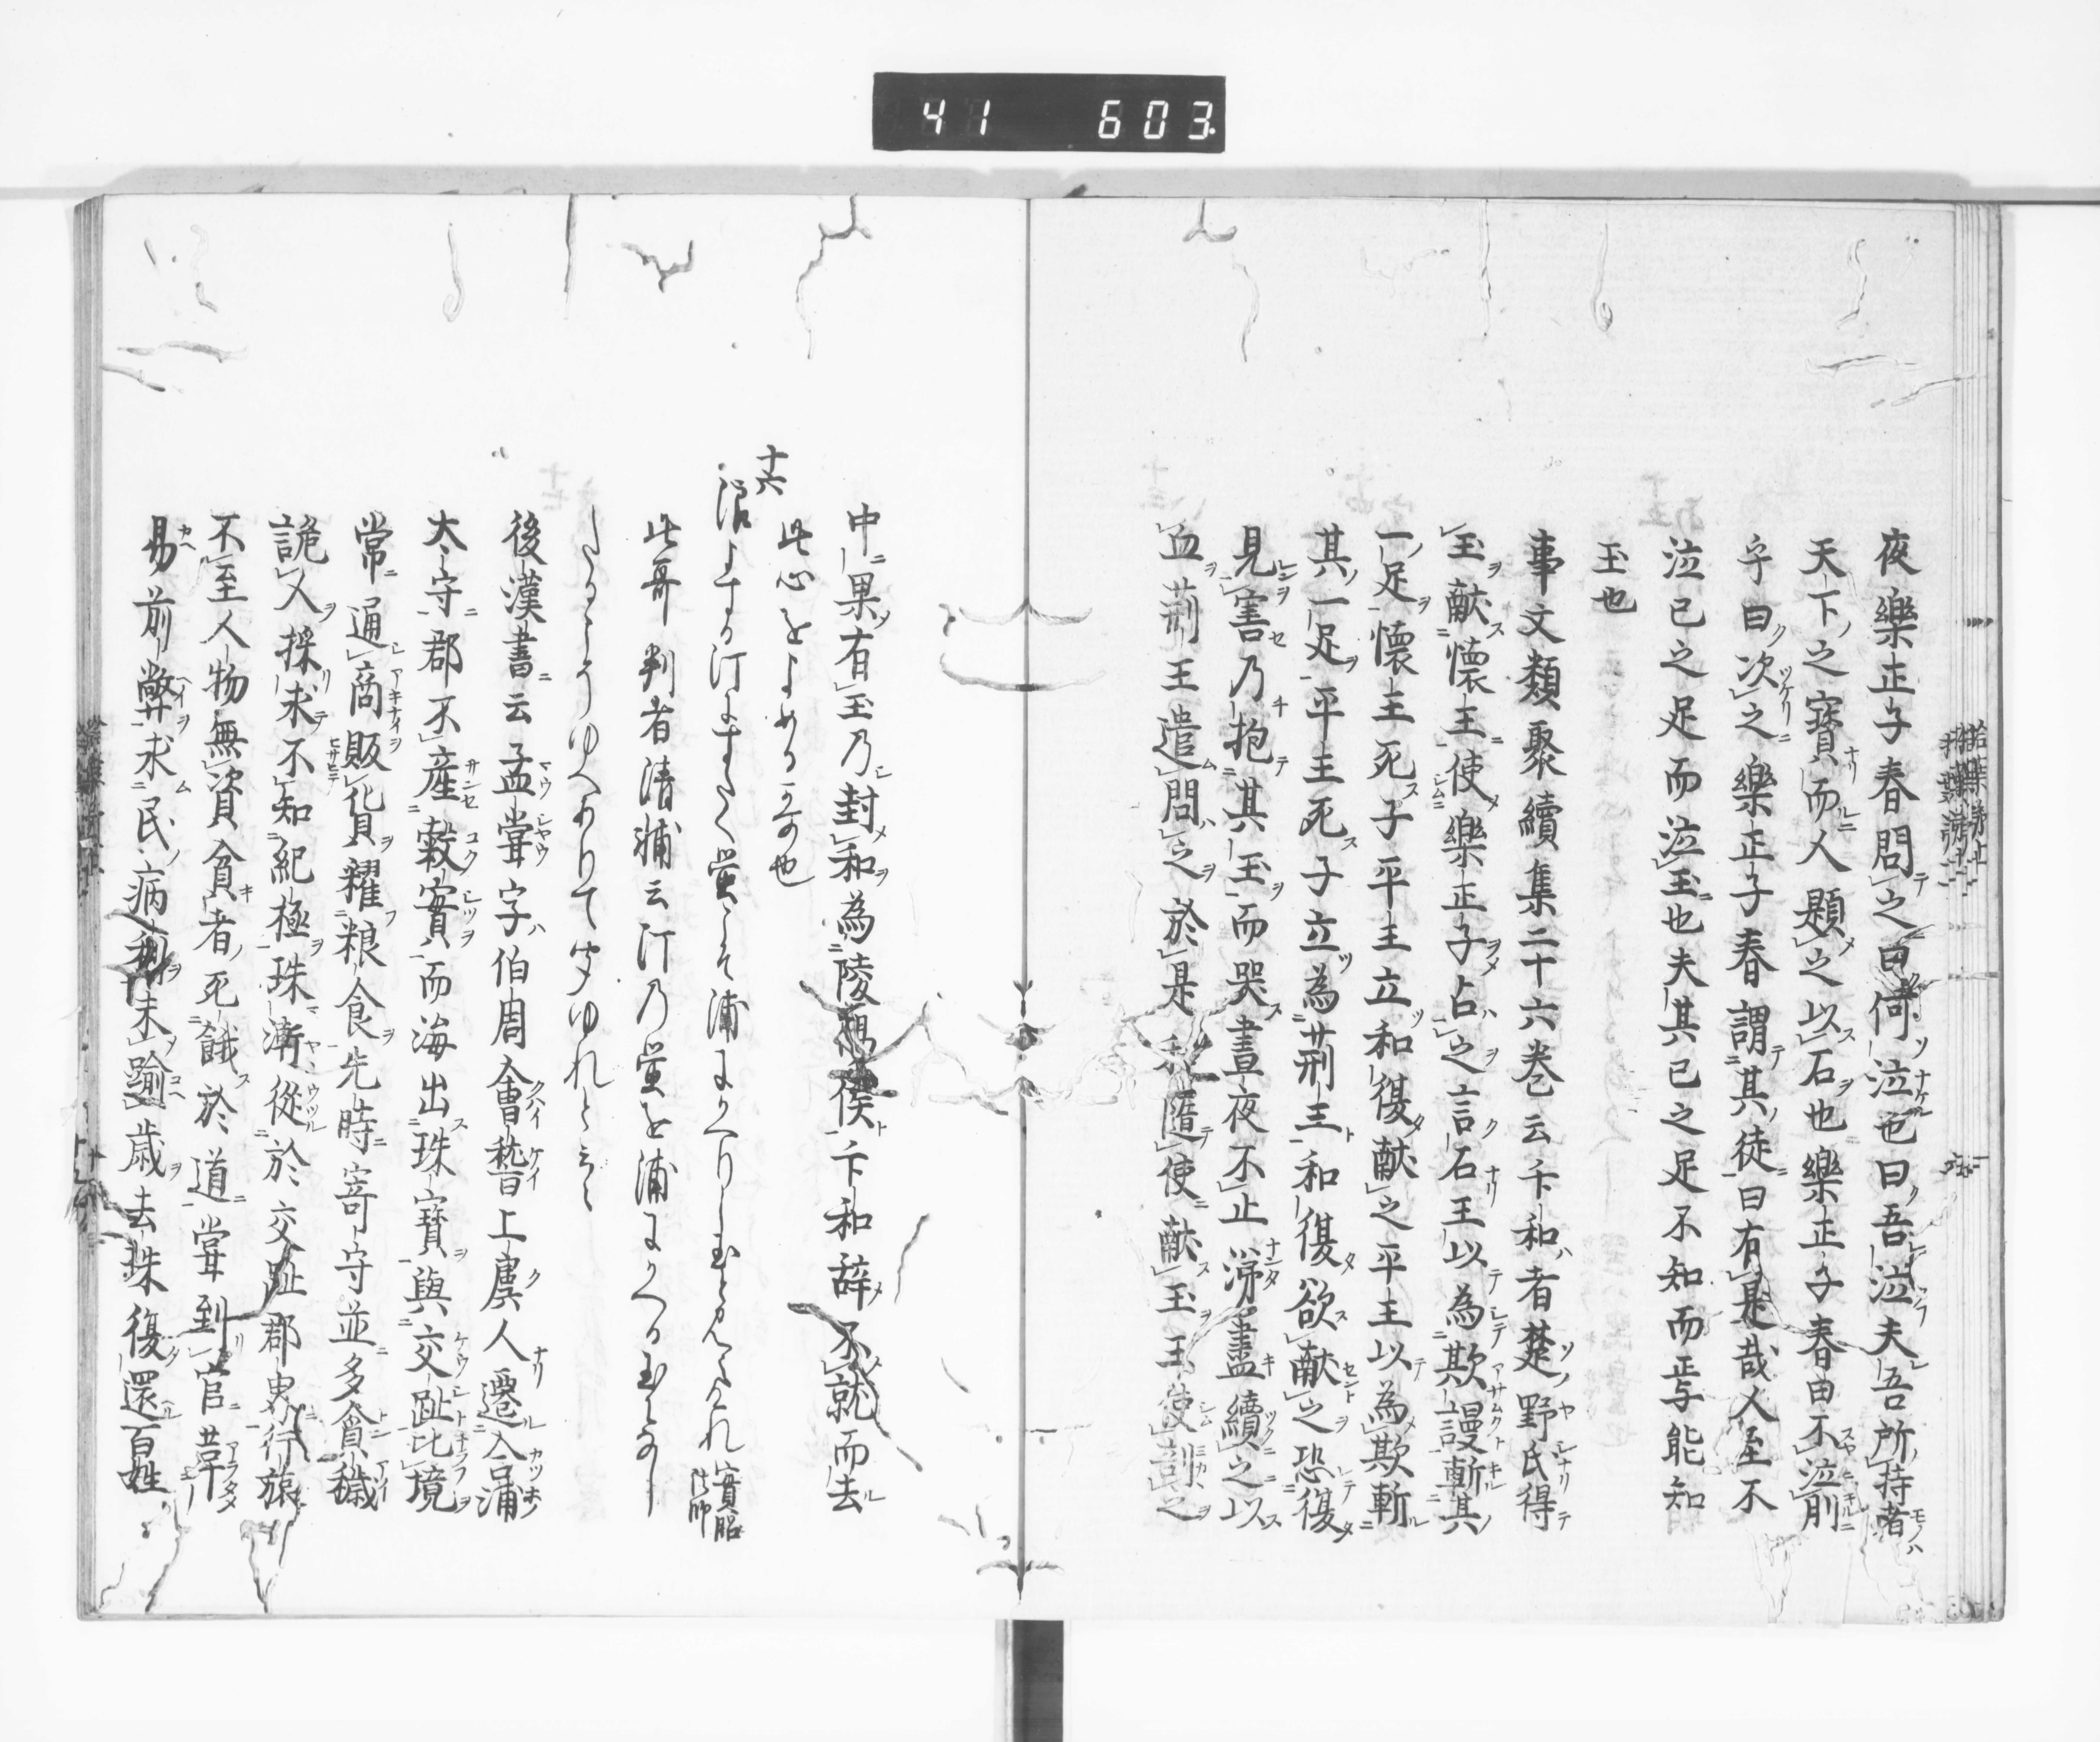 41 603
夜樂正子春問之曰何泣也曰吾泣夫吾所持者
天下之寶而人題之以石也樂正子春由不泣前
乎曰次之樂正子春謂其徒曰有是哉人至不
泣已之足而泣玉也夫其已之足不知而焉能知
玉也
事文類聚續集二十六巻云卞和者楚野氏得
玉献懐王使樂正子占之言石王以為欺謾斬其
一足懐王死子平王立和復献之平王以為欺斬
其一足平王死子立為荊王和復欲献之恐復
見害乃抱其玉而哭晝夜不止涕盡續之以
血荊王遣問之於是和随使献玉王使剖之
中果有玉乃封和為陵陽侯卞和辞不就而去
此心をよめる哥也
十六
浪よする汀にすたく蛍こそ浦にかへりし玉とみえけれ 實昭法師
此哥判者清輔云汀乃蛍を浦にかへる玉となし
後漢書云孟甞字伯周會稽上虞人遷合浦
太守郡不産穀實而海出珠寶與交趾比境
常通商販貿糴粮食先時宰守並多貪穢
詭人採求不知紀極珠漸徙於交趾郡界行旅
不至人物無資貧者死餓於道甞到官革
易前弊求民病利未踰歳去珠復還百姓